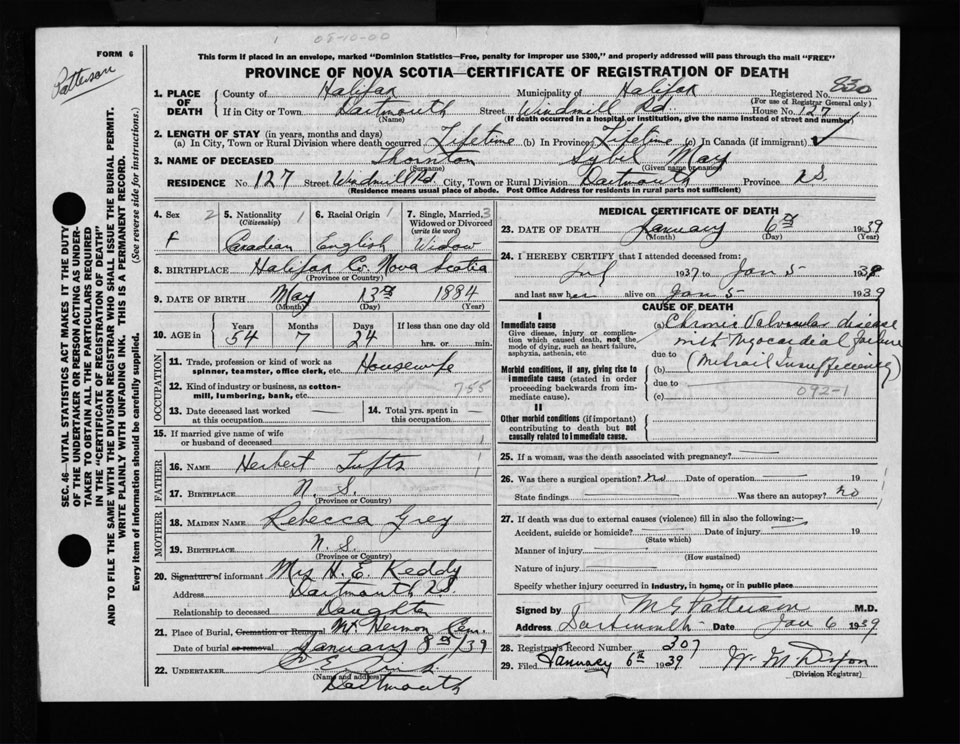 05-10-00
FORM 6
Patterson
This form if placed in an envelope, marked "Dominion Statistics—Free, penalty for improper use $300," and properly addressed will pass through the mail "FREE"
PROVINCE OF NOVA SCOTIA—CERTIFICATE OF REGISTRATION OF DEATH
1. PLACE OF DEATH
County of Halifax Municipality of Halifax Registered No. 830
(For use of Registrar General only)
If in City or Town Dartmouth Street Windmill Rd. House No. 127
(Name) (If death occurred in a hospital or institution, give the name instead of street and number)
2. LENGTH OF STAY (in years, months and days)
(a) In City, Town or Rural Division where death occurred Lifetime (b) In Province Lifetime (c) In Canada (if immigrant) ✓
3. NAME OF DECEASED Thornton Sybil May
(Surname) (Given name or names)
RESIDENCE No. 127 Street Windmill Rd. City, Town or Rural Division Dartmouth Province N.S.
(Residence means usual place of abode. Post Office Address for residents in rural parts not sufficient)
SEC. 46—VITAL STATISTICS ACT MAKES IT THE DUTY
OF THE UNDERTAKER OR PERSON ACTING AS UNDER-
TAKER TO OBTAIN ALL THE PARTICULARS REQUIRED
IN THE "CERTIFICATE OF REGISTRATION OF DEATH"
AND TO FILE THE SAME WITH THE DIVISION REGISTRAR WHO SHALL ISSUE THE BURIAL PERMIT.
WRITE PLAINLY WITH UNFADING INK. THIS IS A PERMANENT RECORD.
Every item of information should be carefully supplied. (See reverse side for instructions.)
4. Sex 2 F
5. Nationality 1 (Citizenship) Canadian
6. Racial Origin 1 English
7. Single, Married, 3 Widowed or Divorced (write the word) Widow
8. BIRTHPLACE Halifax Co. Nova Scotia
(Province or Country)
9. DATE OF BIRTH May 13th 1884
(Month) (Day) (Year)
10. AGE in Years 54 Months 7 Days 24 If less than one day old hrs. or min.
OCCUPATION
11. Trade, profession or kind of work as spinner, teamster, office clerk, etc. Housewife
12. Kind of industry or business, as cotton-mill, lumbering, bank, etc. 755
13. Date deceased last worked at this occupation —
14. Total yrs. spent in this occupation —
15. If married give name of wife or husband of deceased — 1
FATHER
16. NAME Herbert Tufts 1
17. BIRTHPLACE N. S. 1
(Province or Country)
MOTHER
18. MAIDEN NAME Rebecca Grey
19. BIRTHPLACE N. S.
(Province or Country)
20. Signature of informant Mrs H. E. Keddy
Address Dartmouth N.S.
Relationship to deceased Daughter
21. Place of Burial, Cremation or Removal Mt Hermon Cem.
Date of burial or removal January 8th/39
22. UNDERTAKER
(Name and address)
Dartmouth
MEDICAL CERTIFICATE OF DEATH
23. DATE OF DEATH January 6th 1939
(Month) (Day) (Year)
24. I HEREBY CERTIFY that I attended deceased from:
Jul 1937 to Jan 5 1938
and last saw her alive on Jan 5 1939
CAUSE OF DEATH
I
Immediate cause
Give disease, injury or complication which caused death, not the mode of dying, such as heart failure, asphyxia, asthenia, etc
Morbid conditions, if any, giving rise to immediate cause (stated in order proceeding backwards from immediate cause).
II
Other morbid conditions (if important) contributing to death but not causally related to immediate cause.
(a) Chronic Valvular disease
with Myocardial failure
due to
(b) (Mitrail Insufficiency)
due to
(c) 092-1
25. If a woman, was the death associated with pregnancy? —
26. Was there a surgical operation? no Date of operation — 19
State findings — Was there an autopsy? no 1
27. If death was due to external causes (violence) fill in also the following:—
Accident, suicide or homicide? — Date of injury — 19
(State which)
Manner of injury —
(How sustained)
Nature of injury —
Specify whether injury occurred in industry, in home, or in public place
Signed by M G Patterson M.D.
Address Dartmouth Date Jan 6 1939
28. Registrar's Record Number 307
29. Filed January 6th 1939 W. M. Dixon
(Division Registrar)